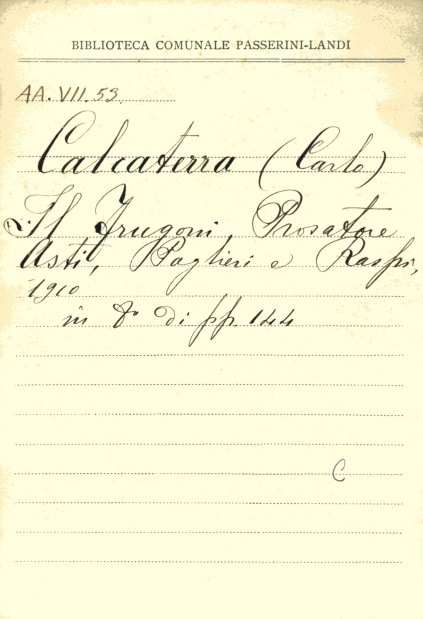 BIBLIOTECA COMUNALE PASSERINI-LANDI
AA. VII. 53.
Calcaterra (Carlo)
Il Frugoni, Prosatore
Asti, Paglieri e Raspi,
1910
in 8° di pp. 144
C